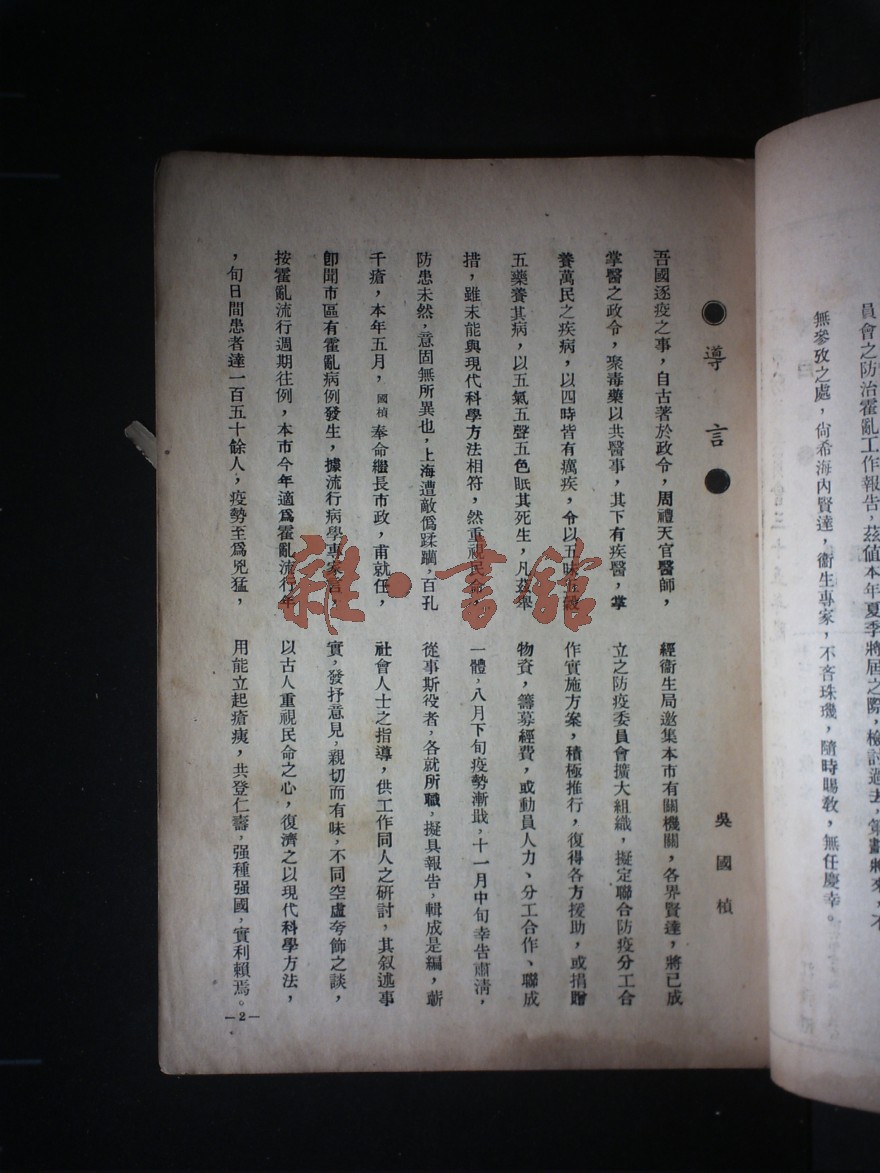 員會之防治霍亂工作報告，茲値本年夏季將屆之際，檢討過去，策劃將來，不
無參攷之處，尙希海內賢達，衞生專家，不吝珠璣，隨時賜敎，無任慶幸。
●導言●
吳國楨
吾國逐疫之事，自古著於政令，周禮天官醫師，
掌醫之政令，聚毒藥以共醫事，其下有疾醫，掌
養萬民之疾病，以四時皆有癘疾，令以五味五穀
五藥養其病，以五氣五聲五色眂其死生，凡茲舉
措，雖未能與現代科學方法相符，然重視民命，
防患未然，意固無所異也，上海遭敵僞蹂躪，百孔
千瘡，本年五月，國楨奉命繼長市政，甫就任，
卽聞市區有霍亂病例發生，據流行病學專家言，
按霍亂流行週期往例，本市今年適爲霍亂流行年
，旬日間患者達一百五十餘人，疫勢至爲兇猛，
經衞生局邀集本市有關機關，各界賢達，將已成
立之防疫委員會擴大組織，擬定聯合防疫分工合
作實施方案，積極推行，復得各方援助，或捐贈
物資，籌募經費，或動員人力、分工合作、聯成
一體，八月下旬疫勢漸戢，十一月中旬幸告肅淸，
從事斯役者，各就所職，擬具報告，輯成是編，蘄
社會人士之指導，供工作同人之硏討，其叙述事
實，發抒意見，親切而有味，不同空虛夸飾之談，
以古人重視民命之心，復濟之以現代科學方法，
用能立起瘡痍，共登仁壽，强種强國，實利賴焉。
—2—
雜·書館